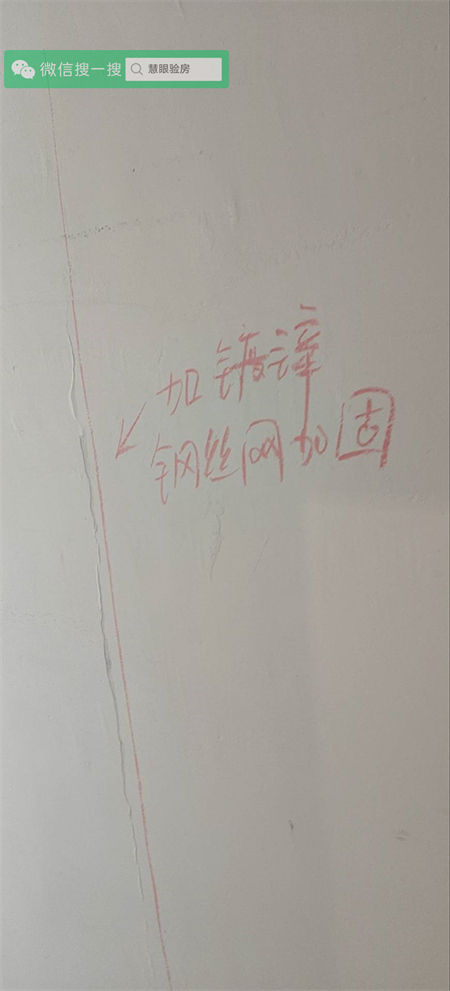 微信搜一搜 慧眼验房
加镀锌
钢丝网加固